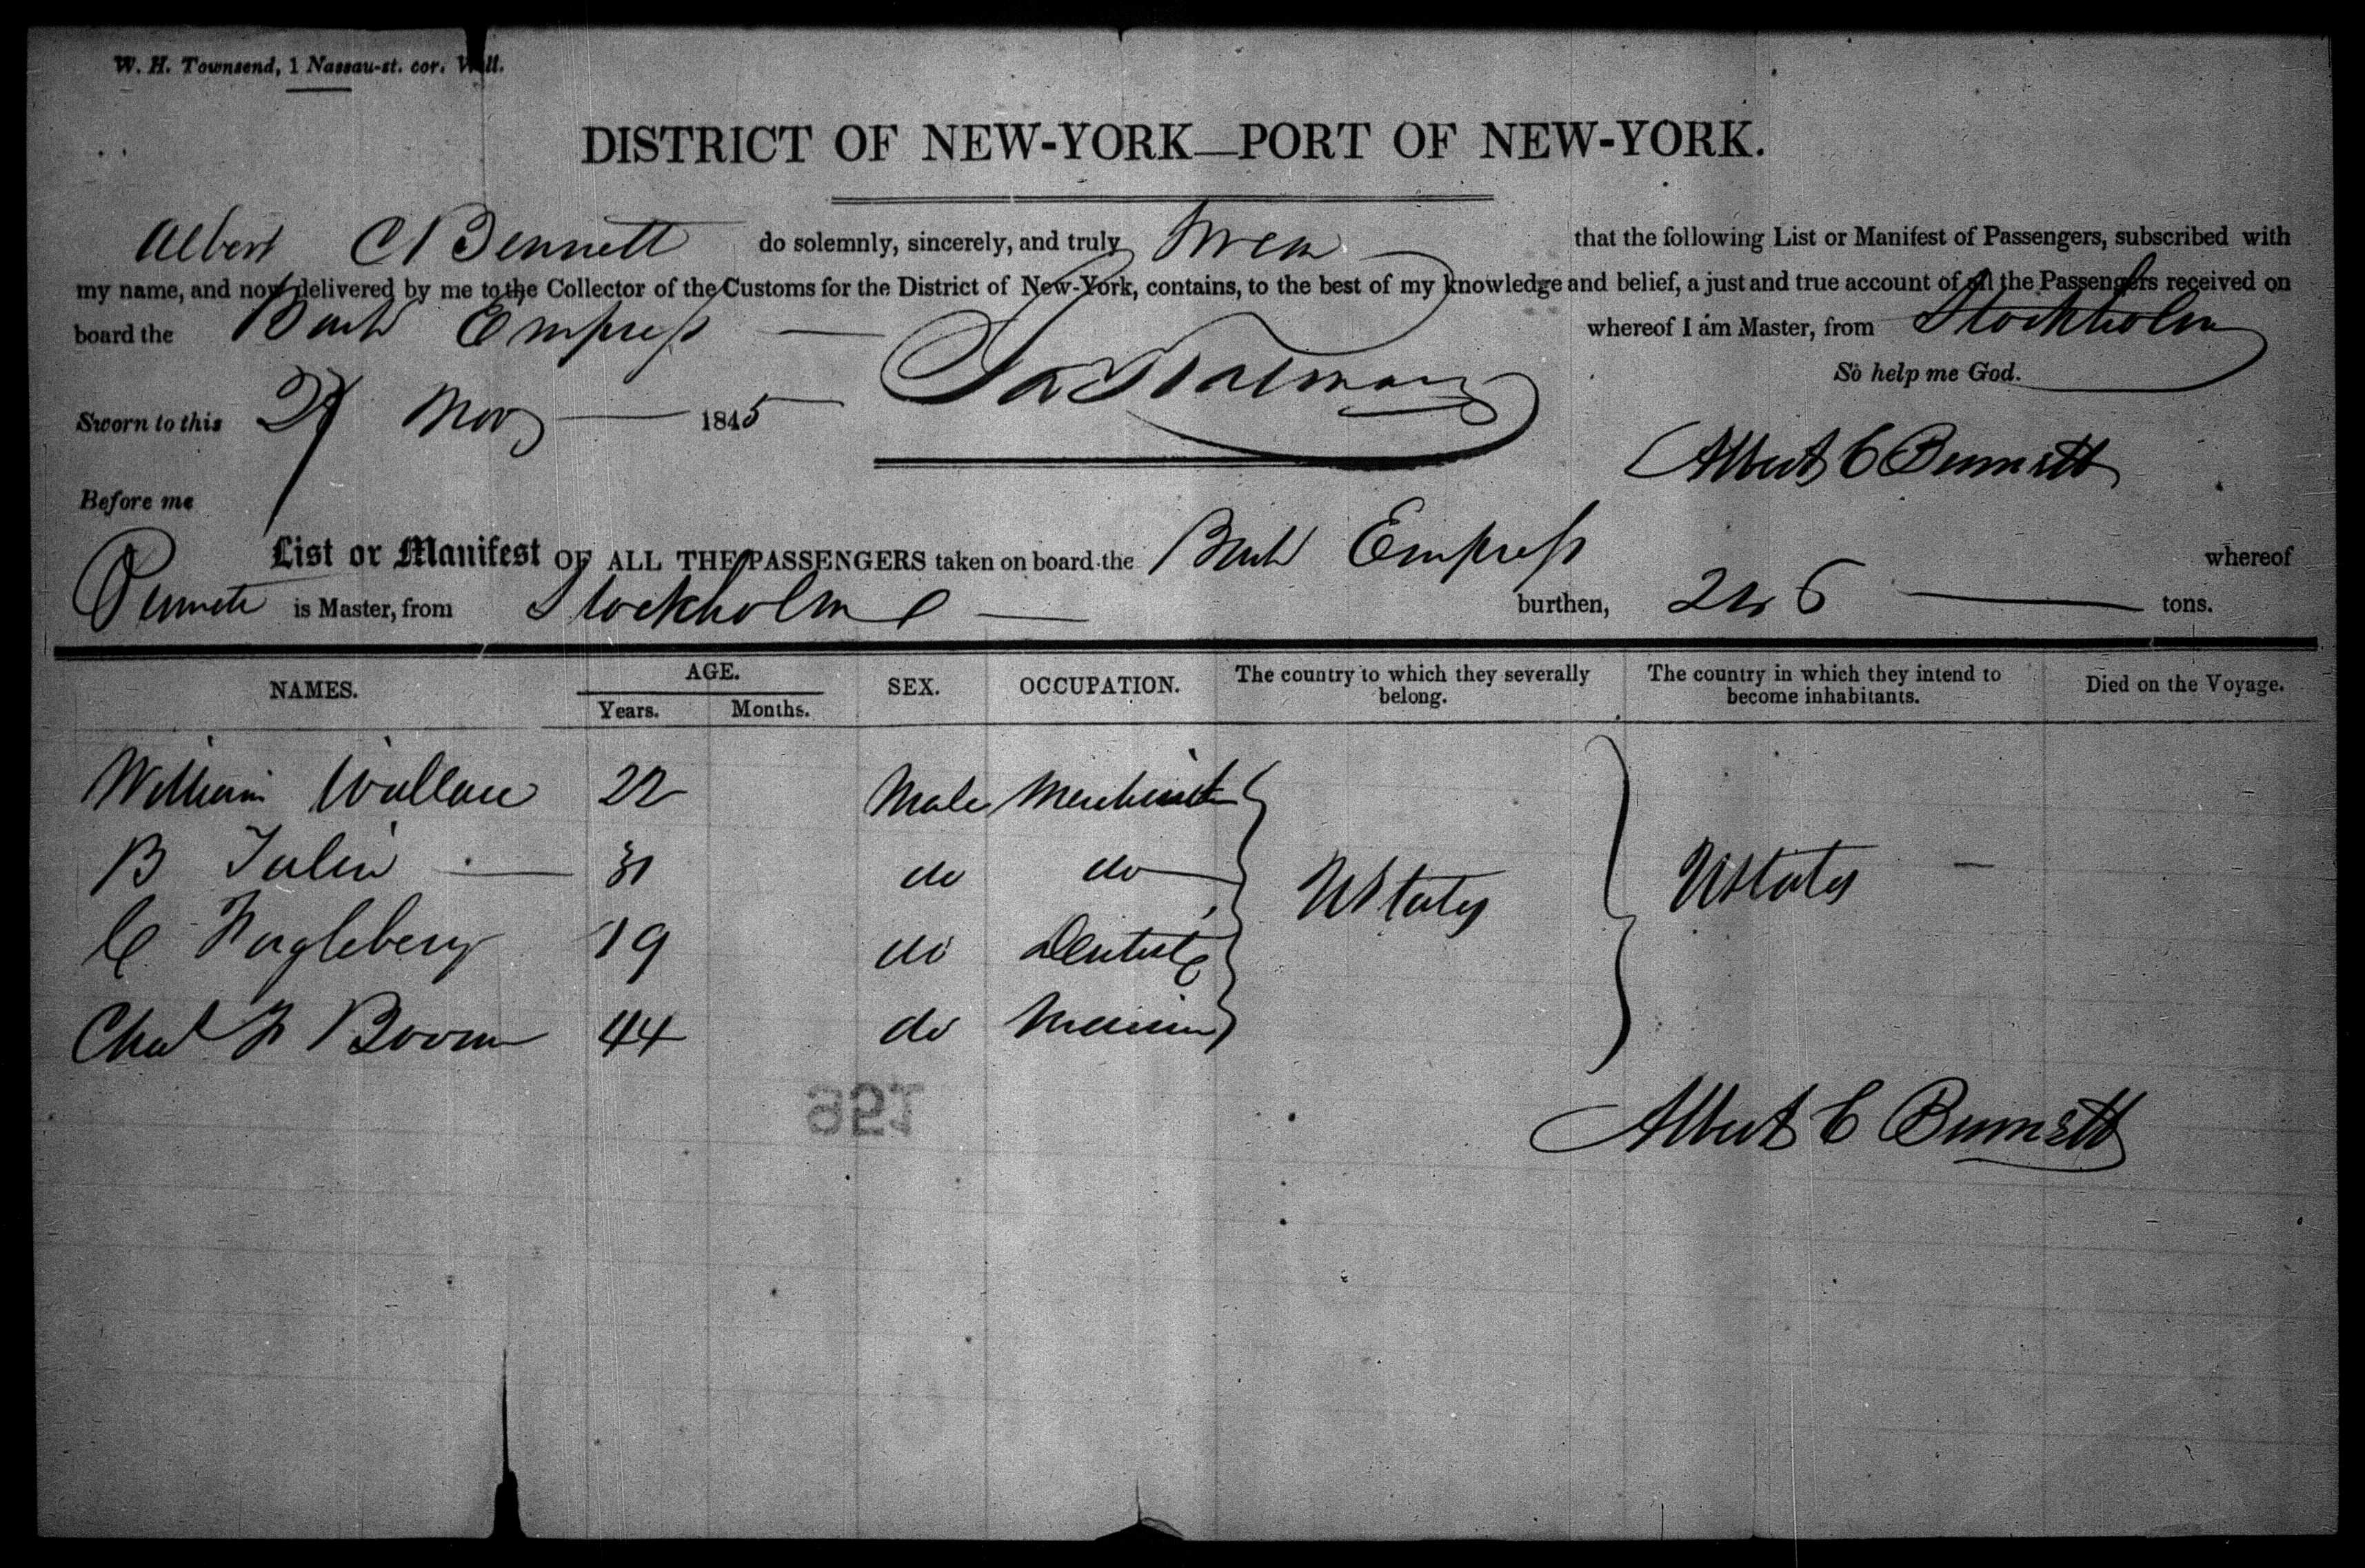 W. H. Townsend, 1 Nassau-st. cor. Wall.
DISTRICT OF NEW-YORK—PORT OF NEW-YORK.
Albert C Bennett do solemnly, sincerely, and truly Swear that the following List or Manifest of Passengers, subscribed with
my name, and now delivered by me to the Collector of the Customs for the District of New-York, contains, to the best of my knowledge and belief, a just and true account of all the Passengers received on
board the Bark Empress whereof I am Master, from Stockholm
So help me God.
Sworn to this Nov 1845
Albert C Bennett
Before me
List or Manifest OF ALL THE PASSENGERS taken on board the Bark Empress whereof
Bennett is Master, from Stockholm burthen, tons.
NAMES. AGE. SEX. OCCUPATION. The country to which they severally belong. The country in which they intend to become inhabitants. Died on the Voyage.
Years. Months.
William Wallace 22 Male Merchant
B 31 do do UStates UStates
C 19 do Dentist
Chas F 44 do
951
Albert C Bennett